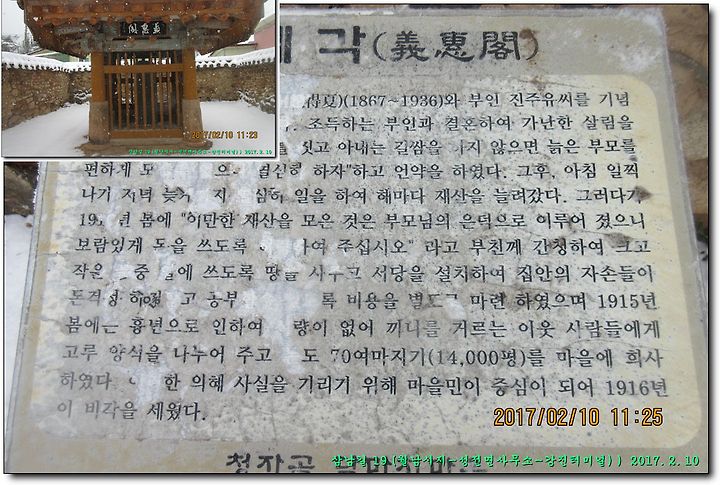 義惠閣
2017/02/10 11:23
각(義惠閣)
(1867~1936)와 부인 진주유씨를 기념
조득하는 부인과 결혼하여 가난한 살림을
짓고 아내는 길쌈을 하지 않으면 늙은 부모를
편하게 하자"하고 언약을 하였다. 그후, 아침 일찍
나가 저녁 늦게 일을 하여 해마다 재산을 늘려갔다. 그러다가
봄에 "이만한 재산을 모은 것은 부모님의 은덕으로 이루어 졌으니
보람있게 돈을 쓰도록 하여 주십시오" 라고 부친께 간청하여 크고
작은 중 에 쓰도록 땅을 사두고 서당을 설치하여 집안의 자손들이
공부 록 비용을 별도로 마련 하였으며 1915년
봄에는 흉년으로 인하여 량이 없어 끼니를 거르는 이웃 사람들에게
고루 양식을 나누어 주고 도 70여마지기(14,000평)를 마을에 희사
하였다. 한 의혜 사실을 기리기 위해 마을민이 중심이 되어 1916년
이 비각을 세웠다.
2017/02/10 11:25
삼남길 19 (월남사지-성전면사무소-강진터미널)) 2017. 2. 10